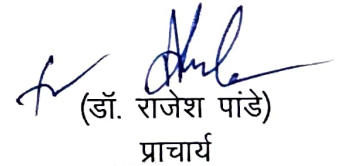 (डॉ. राजेश पांडे)
प्राचार्य